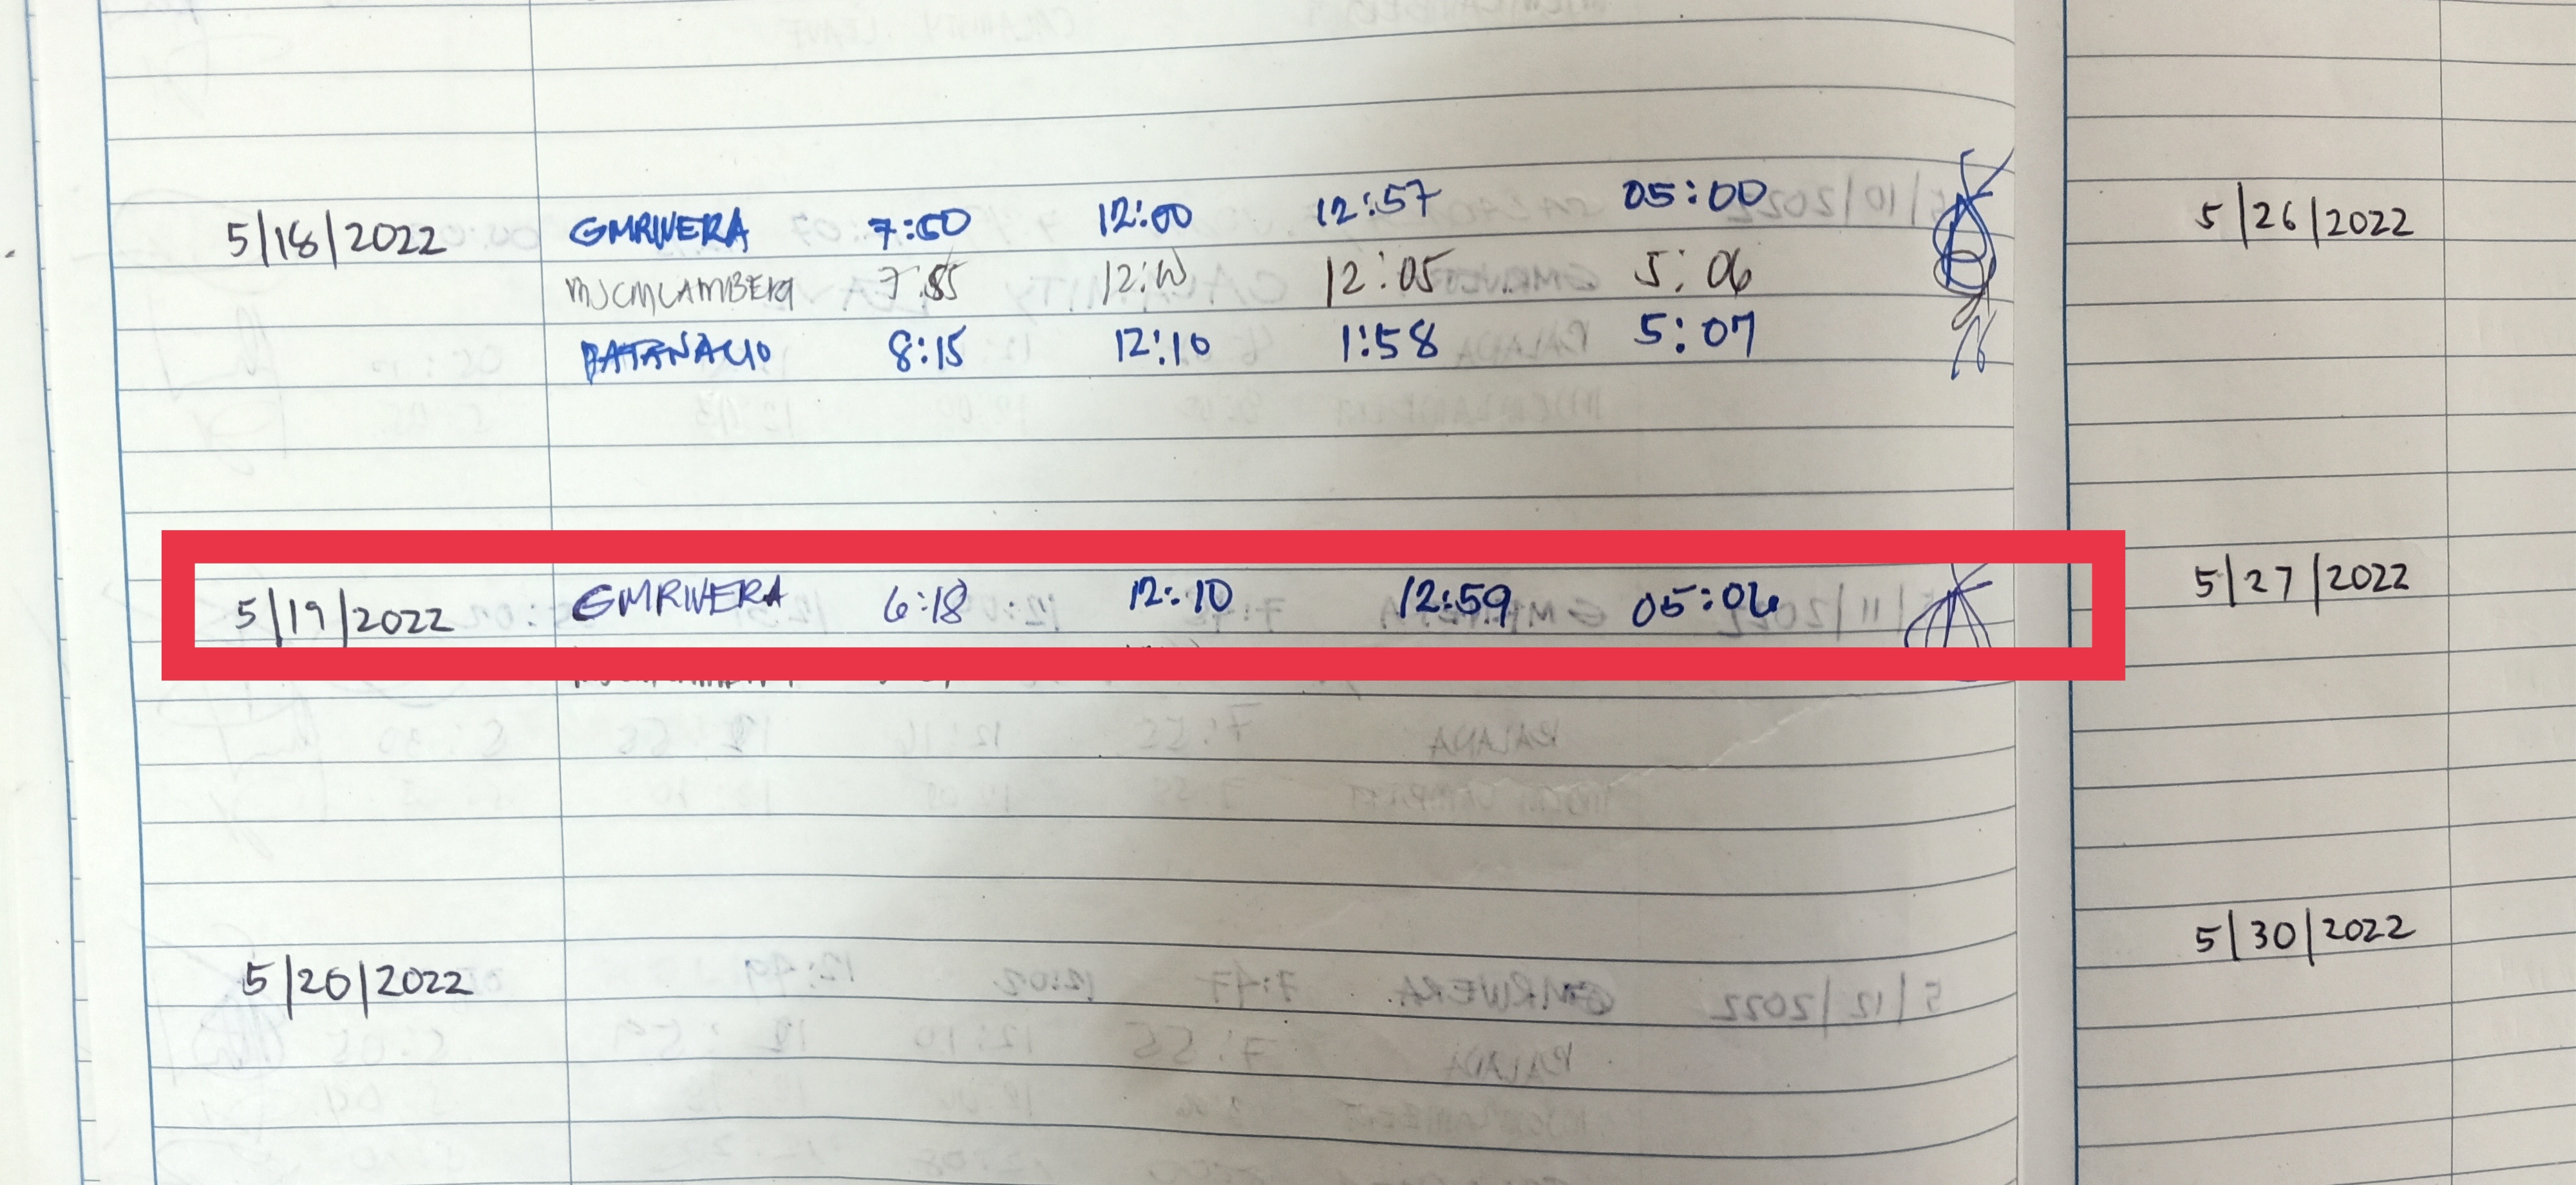 5/18/2022 GMRIVERA 7:50 12:00 12:57 05:00
7:55 12:05 5:06
8:15 12:10 1:58 5:07
5/19/2022 GMRIVERA 6:18 12:10 12:59 05:06
5/20/2022
5/26/2022
5/27/2022
5/30/2022